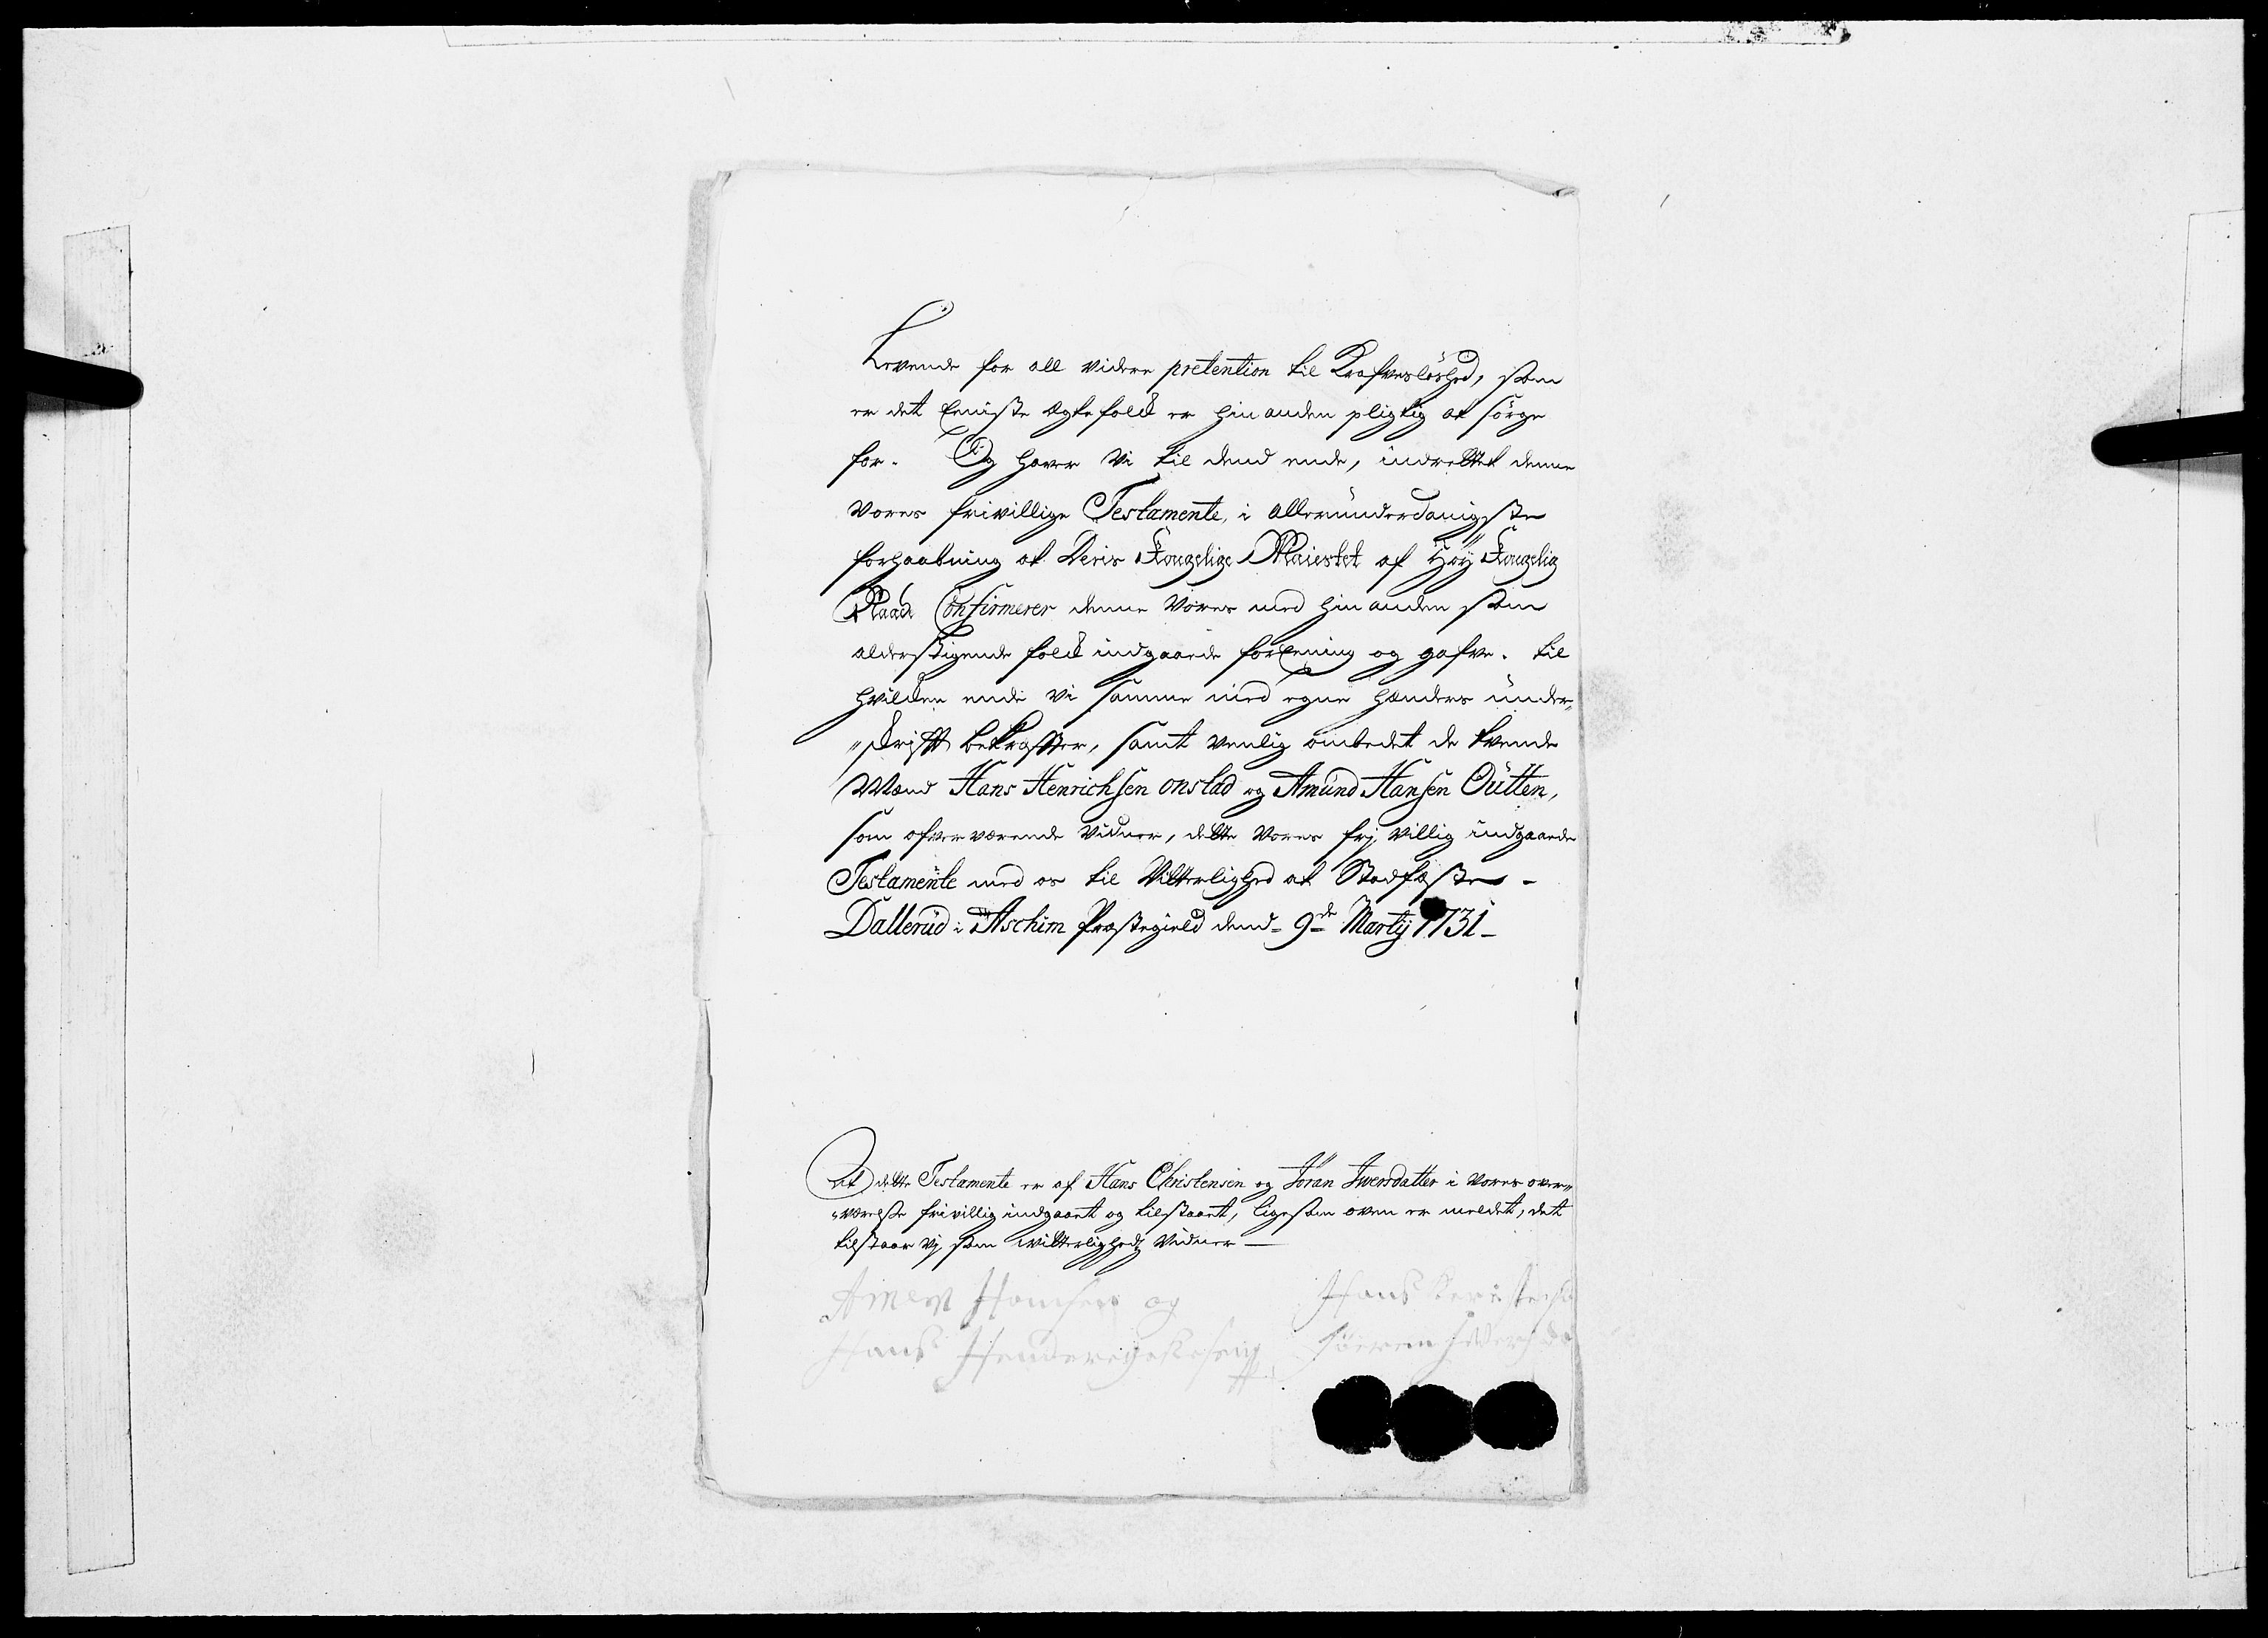 Levende for all videre pretention til Krafvesløshed, som
er det Eeniste Egtefolck er hin anden pligtig at sørge
for. Og haver Vi til dend ende, indrettet denne
Vores frivillige Testamente, i allerunderdanigste
forhaabning at Deris Kongelige Maiestet af Høy Kongelig
Naade Confirmerer denne Vores med hin anden som
alderstigende folck indgaaede forEening og gafve. til
hvilcken ende vi samme med egne hænders under„
„skrifft bekræffter, samt venlig ombedet de tvende
Mænd Hans Henrichsen onstad og Amund Hansen Outten,
som ofververende Vidner, dette Vores frj villig indgaaede
Testamente med os til Vitterlighed at Stadfæste.
Dallerud i Aschim Præstegield dend 9de Martij 1731
At dette Testamente er af Hans Christensen og Jöran Iwersdatter i Vores over„
„værelse frivillig indgaaet og tilstaaet, ligesom oven er meldet, det
tilstaar vj som witterligheds Vidner
Hansen og Hans
Hans